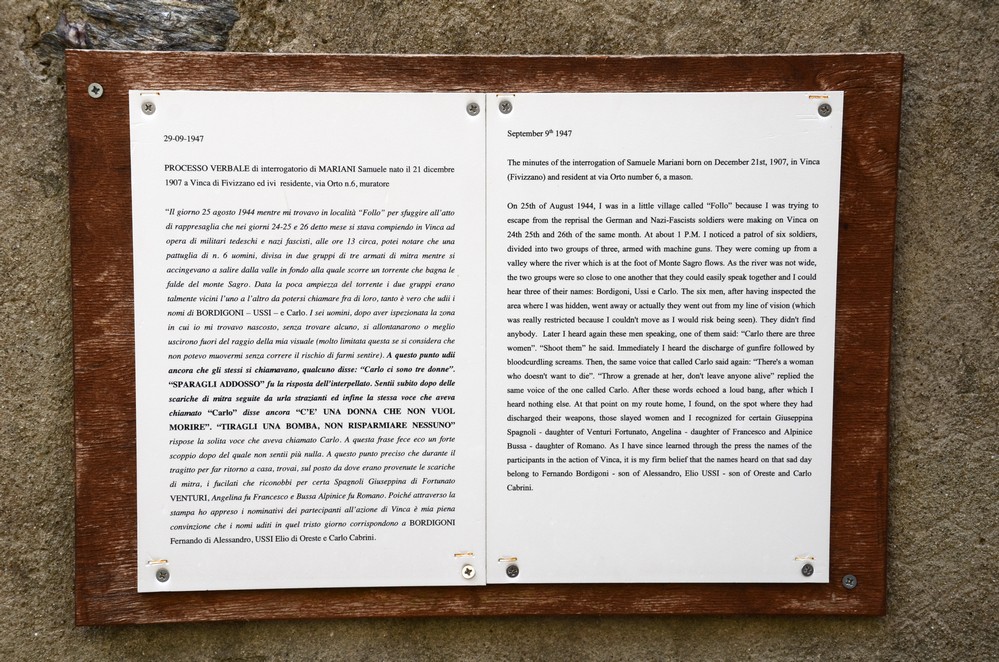 29-09-1947
PROCESSO VERBALE di interrogatorio di MARIANI Samuele nato il 21 dicembre
1907 a Vinca di Fivizzano ed ivi residente, via Orto n.6, muratore
"Il giorno 25 agosto 1944 mentre mi trovavo in località "Follo" per sfuggire all'atto
di rappresaglia che nei giorni 24-25 e 26 detto mese si stava compiendo in Vinca ad
opera di militari tedeschi e nazi fascisti, alle ore 13 circa, potei notare che una
pattuglia di n. 6 uomini, divisa in due gruppi di tre armati di mitra mentre si
accingevano a salire dalla valle in fondo alla quale scorre un torrente che bagna le
falde del monte Sagro. Data la poca ampiezza del torrente i due gruppi erano
talmente vicini l'uno a l'altro da potersi chiamare fra di loro, tanto è vero che udii i
nomi di BORDIGONI – USSI – e Carlo. I sei uomini, dopo aver ispezionata la zona
in cui io mi trovavo nascosto, senza trovare alcuno, si allontanarono o meglio
uscirono fuori del raggio della mia visuale (molto limitata questa se si considera che
non potevo muovermi senza correre il rischio di farmi sentire). A questo punto udii
ancora che gli stessi si chiamavano, qualcuno disse: "Carlo ci sono tre donne".
"SPARAGLI ADDOSSO" fu la risposta dell'interpellato. Sentii subito dopo delle
scariche di mitra seguite da urla strazianti ed infine la stessa voce che aveva
chiamato "Carlo" disse ancora "C'E' UNA DONNA CHE NON VUOL
MORIRE". "TIRAGLI UNA BOMBA, NON RISPARMIARE NESSUNO"
rispose la solita voce che aveva chiamato Carlo. A questa frase fece eco un forte
scoppio dopo del quale non sentii più nulla. A questo punto preciso che durante il
tragitto per far ritorno a casa, trovai, sul posto da dove erano provenute le scariche
di mitra, i fucilati che riconobbi per certa Spagnoli Giuseppina di Fortunato
VENTURI, Angelina fu Francesco e Bussa Alpinice fu Romano. Poiché attraverso la
stampa ho appreso i nominativi dei partecipanti all'azione di Vinca è mia piena
convinzione che i nomi uditi in quel tristo giorno corrispondono a BORDIGONI
Fernando di Alessandro, USSI Elio di Oreste e Carlo Cabrini.
September 9th 1947
The minutes of the interrogation of Samuele Mariani born on December 21st, 1907, in Vinca
(Fivizzano) and resident at via Orto number 6, a mason.
On 25th of August 1944, I was in a little village called "Follo" because I was trying to
escape from the reprisal the German and Nazi-Fascists soldiers were making on Vinca on
24th 25th and 26th of the same month. At about 1 P.M. I noticed a patrol of six soldiers,
divided into two groups of three, armed with machine guns. They were coming up from a
valley where the river which is at the foot of Monte Sagro flows. As the river was not wide,
the two groups were so close to one another that they could easily speak together and I could
hear three of their names: Bordigoni, Ussi e Carlo. The six men, after having inspected the
area where I was hidden, went away or actually they went out from my line of vision (which
was really restricted because I couldn't move as I would risk being seen). They didn't find
anybody. Later I heard again these men speaking, one of them said: "Carlo there are three
women". "Shoot them" he said. Immediately I heard the discharge of gunfire followed by
bloodcurdling screams. Then, the same voice that called Carlo said again: "There's a woman
who doesn't want to die". "Throw a grenade at her, don't leave anyone alive" replied the
same voice of the one called Carlo. After these words echoed a loud bang, after which I
heard nothing else. At that point on my route home, I found, on the spot where they had
discharged their weapons, those slayed women and I recognized for certain Giuseppina
Spagnoli - daughter of Venturi Fortunato, Angelina - daughter of Francesco and Alpinice
Bussa - daughter of Romano. As I have since learned through the press the names of the
participants in the action of Vinca, it is my firm belief that the names heard on that sad day
belong to Fernando Bordigoni - son of Alessandro, Elio USSI - son of Oreste and Carlo
Cabrini.